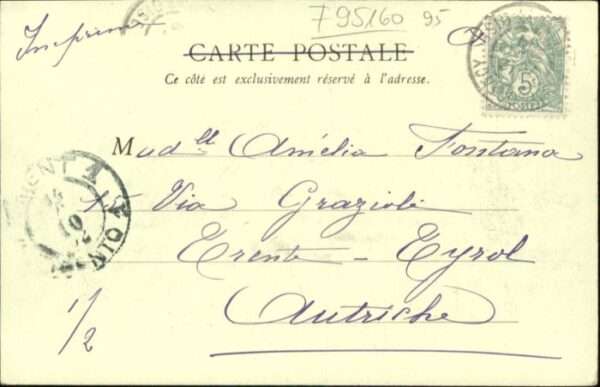 795160 95
Imprimé
CARTE POSTALE
Ce côté est exclusivement réservé à l'adresse.
5
Madlle Amélia Fontana
Via Grazioli
Trente - Tyrol
Autriche
1/2